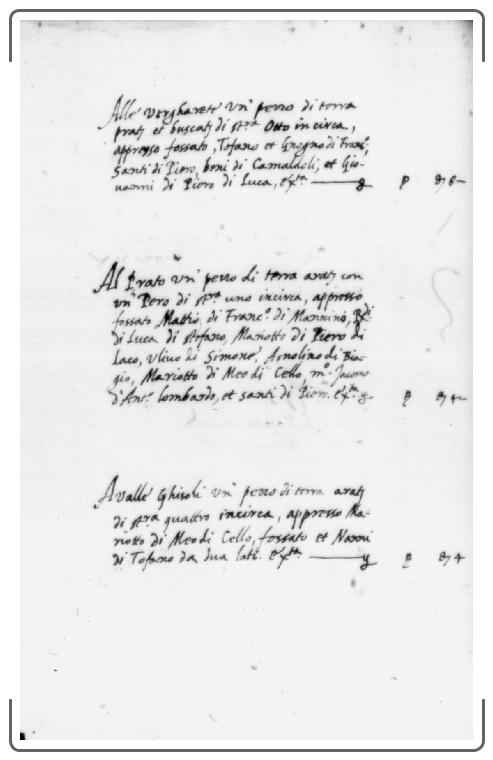 Alle vergharete un° pezzo di terra
pratj et buscatj di st.ra Otto in circa,
appresso fossato, Tofano et Gnogno di Franc.°,
Santi di Piero, beni di Camaldoli, et Gio-
vanni di Piero di Luca,
Al Prato un° pezzo di terra aratj con
un° Pero di st.ra uno incirca, appresso
fossato, Matteo, di Franc.° di Mannino,
di Luca di stefano, Mariotto di Piero di
Laco, Ulivo di Simone, Agnolino di Bia-
gio, Mariotto di Meo di Cello m.° Jacomo
d'Ant.° lombardo, et santi di Piero.
A valle Ghisoli un° pezzo di terra aratj
di st.ra quattro incirca, appresso Ma-
riotto di Meo di Cello, fossato et Nanni
di Tofano da dua lati.